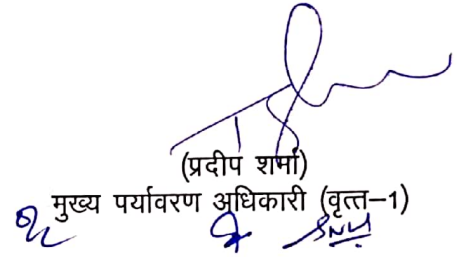 (प्रदीप शर्मा)
मुख्य पर्यावरण अधिकारी (वृत्त-1)